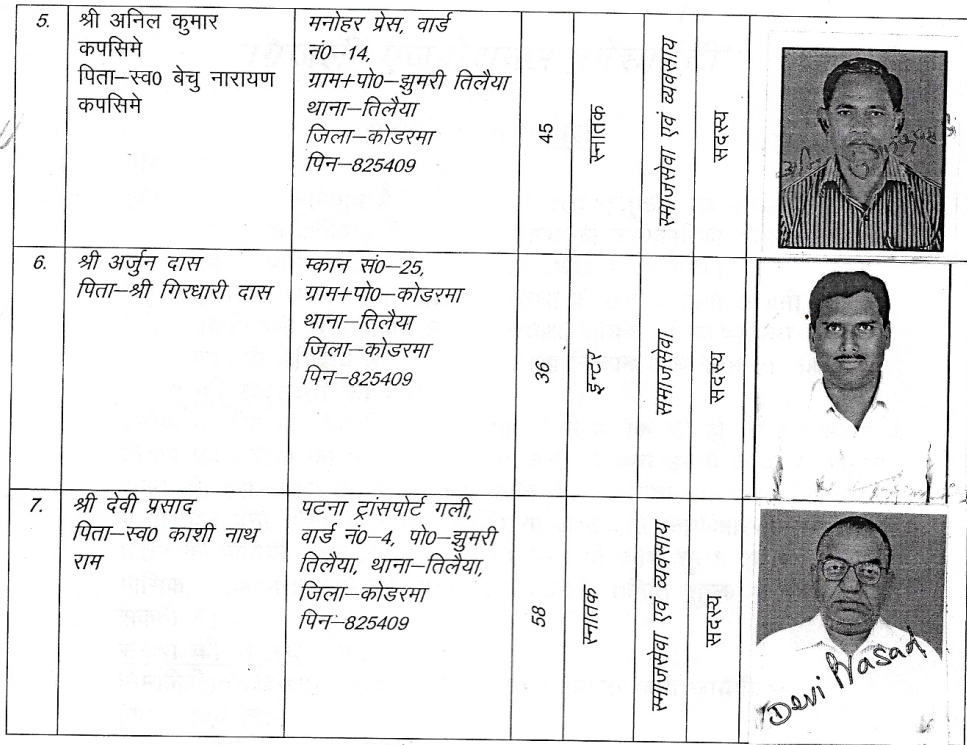 5.
श्री अनिल कुमार
कपसिमे
पिता–स्व0 बेचु नारायण
कपसिमे
मनोहर प्रेस, वार्ड
नं0–14,
ग्राम+पो0–झुमरी तिलैया
थाना–तिलैया
जिला–कोडरमा
पिन–825409
45
स्नातक
समाजसेवा एवं व्यवसाय
सदस्य
6.
श्री अर्जुन दास
पिता–श्री गिरधारी दास
म्कान सं0–25,
ग्राम+पो0–कोडरमा
थाना–तिलैया
जिला–कोडरमा
पिन–825409
36
इन्टर
समाजसेवा
सदस्य
7.
श्री देवी प्रसाद
पिता–स्व0 काशी नाथ
राम
पटना ट्रांसपोर्ट गली,
वार्ड नं0–4, पो0–झुमरी
तिलैया, थाना–तिलैया,
जिला–कोडरमा
पिन–825409
58
स्नातक
समाजसेवा एवं व्यवसाय
सदस्य
Devi Prasad